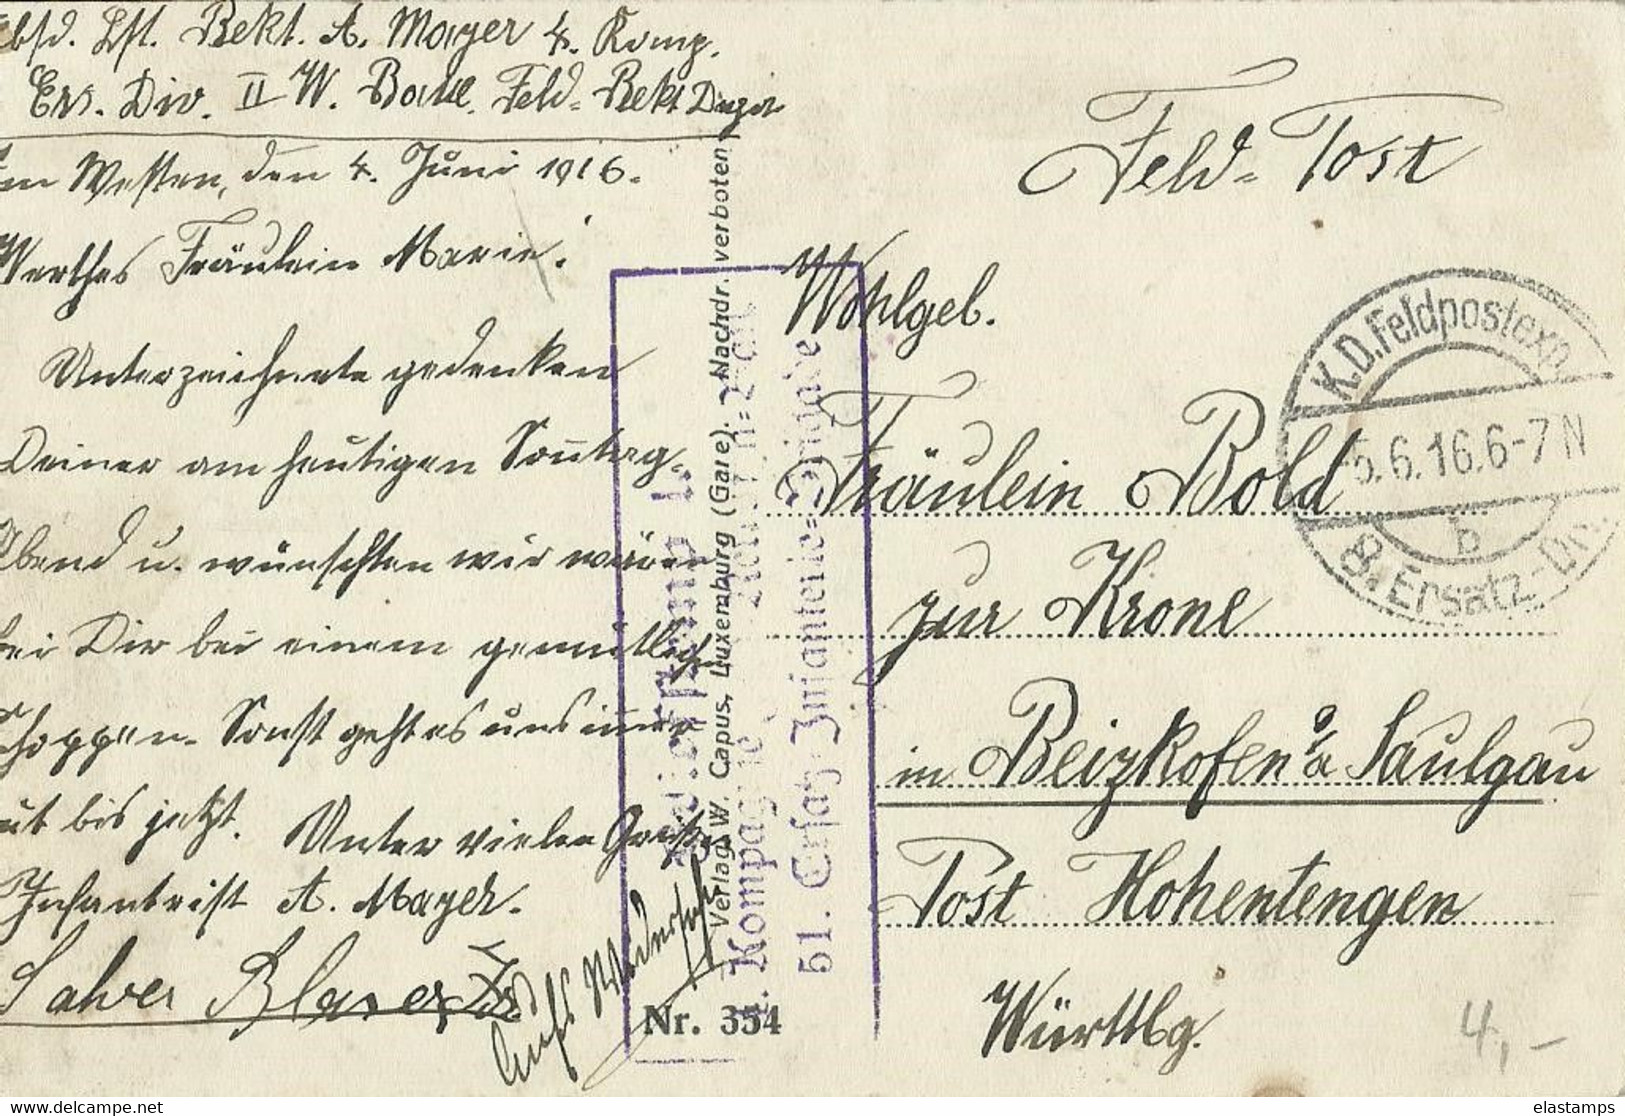 Absd. Lst. Rekt. A. Mayer 4. Komp.
Ers. Div. II W. Batl. Feld-Rekt Depot
Im Westen, den 4. Juni 1916.
Werthes Fräulein Marie!
Unterzeichnete gedenken
Deiner am heutigen Sonntag-
Abend u. wünschten wir wären
bei Dir bei einem gemütlichen
Schoppen. Sonst geht es uns immer
gut bis jetzt. Unter vielen Grüßen
Infantrist A. Mayer.
Blaser
Aufs Wiedersehn
Feld-Post
Wohlgeb.
Fräulein Bold
zur Krone
in Beizkofen o/a Saulgau
Post Hohentengen
Württbg.
4,-
K.D. Feldpostexp.
5.6.16. 6-7 N
b
8. Ersatz-Div.
Kompagnie
51. Ersatz-Infanterie-Brigade
Verlag W. Capus, Luxemburg (Gare). - Nachdr. verboten
Nr. 354
elastamps